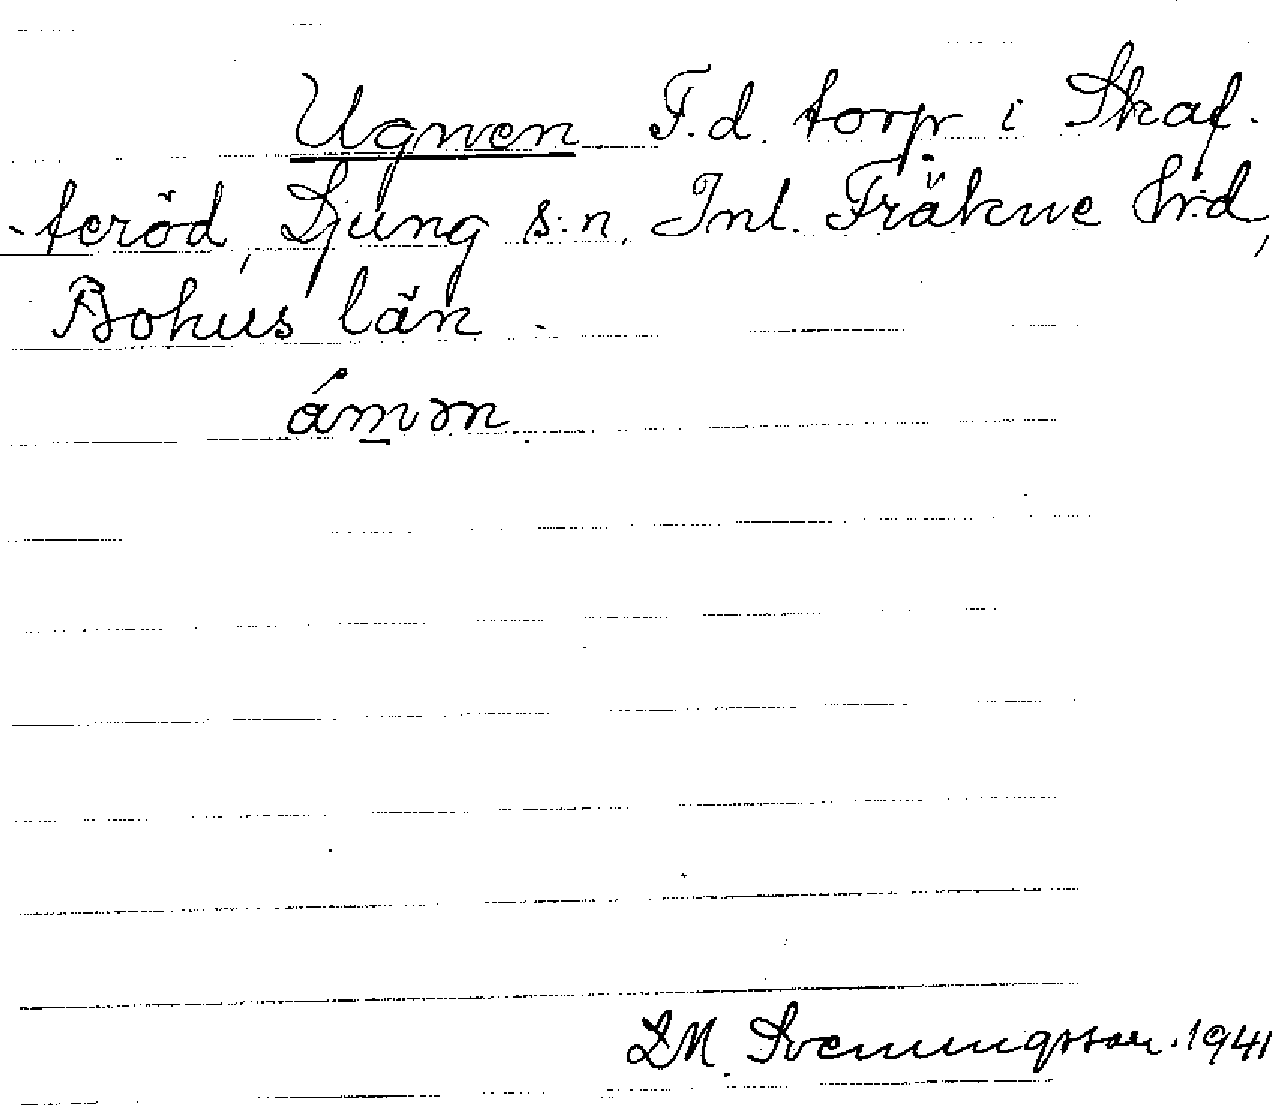 Ugnen F.d. torp i Skaf-
-teröd, Ljung s:n, Inl. Fräkne Hrd,
Bohus län.
L M. Svenungsson. 1941